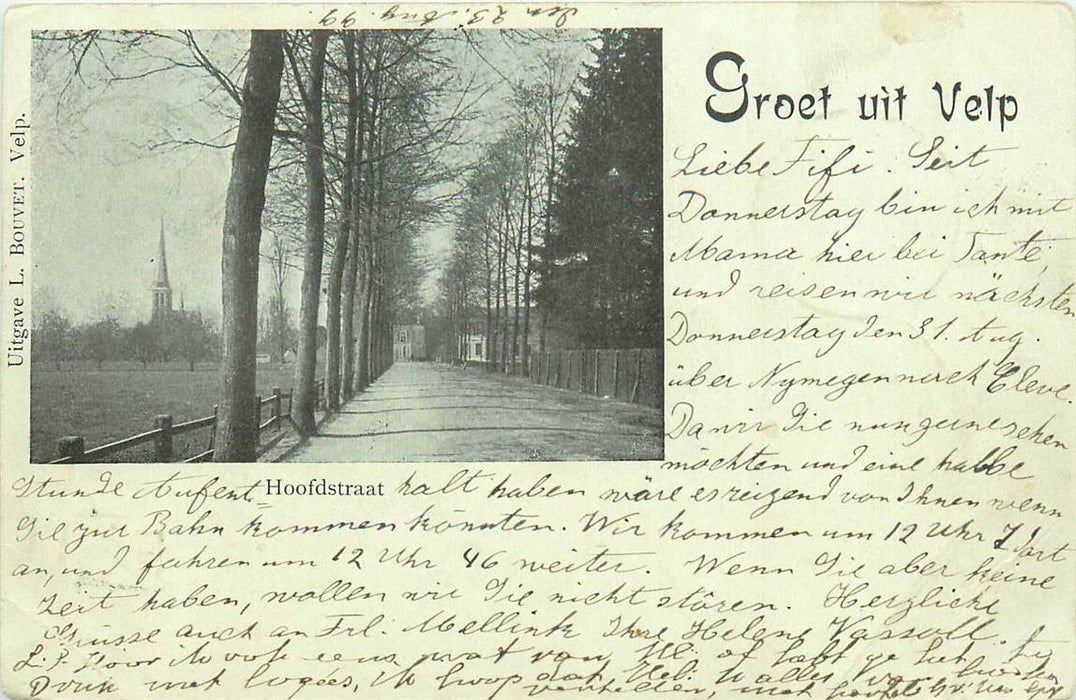 Den 23. Aug. 99.
Uitgave L. BOUVET. Velp.
Groet uit Velp
Liebe Fifi. Seit
Donnerstag bin ich mit
Mama hier bei Tante,
und reisen wir nächsten
Donnerstag den 31. Aug.
über Nymegen nach Cleve.
Da wir Sie nun gerne sehen
möchten und eine halbe
Stunde Aufent=
Hoofdstraat
halt haben wäre es reizend von Ihnen wenn
Sie zur Bahn kommen könnten. Wir kommen um 12 Uhr
dort
an, und fahren um 12 Uhr 46 weiter. Wenn Sie aber keine
Zeit haben, wollen wir Sie nicht stören. Herzliche
Grüsse auch an Frl. Mellink Ihre Helene
L. F. Hoor ik ook eens wat van
of
Druk met logées, ik hoop dat
U alles